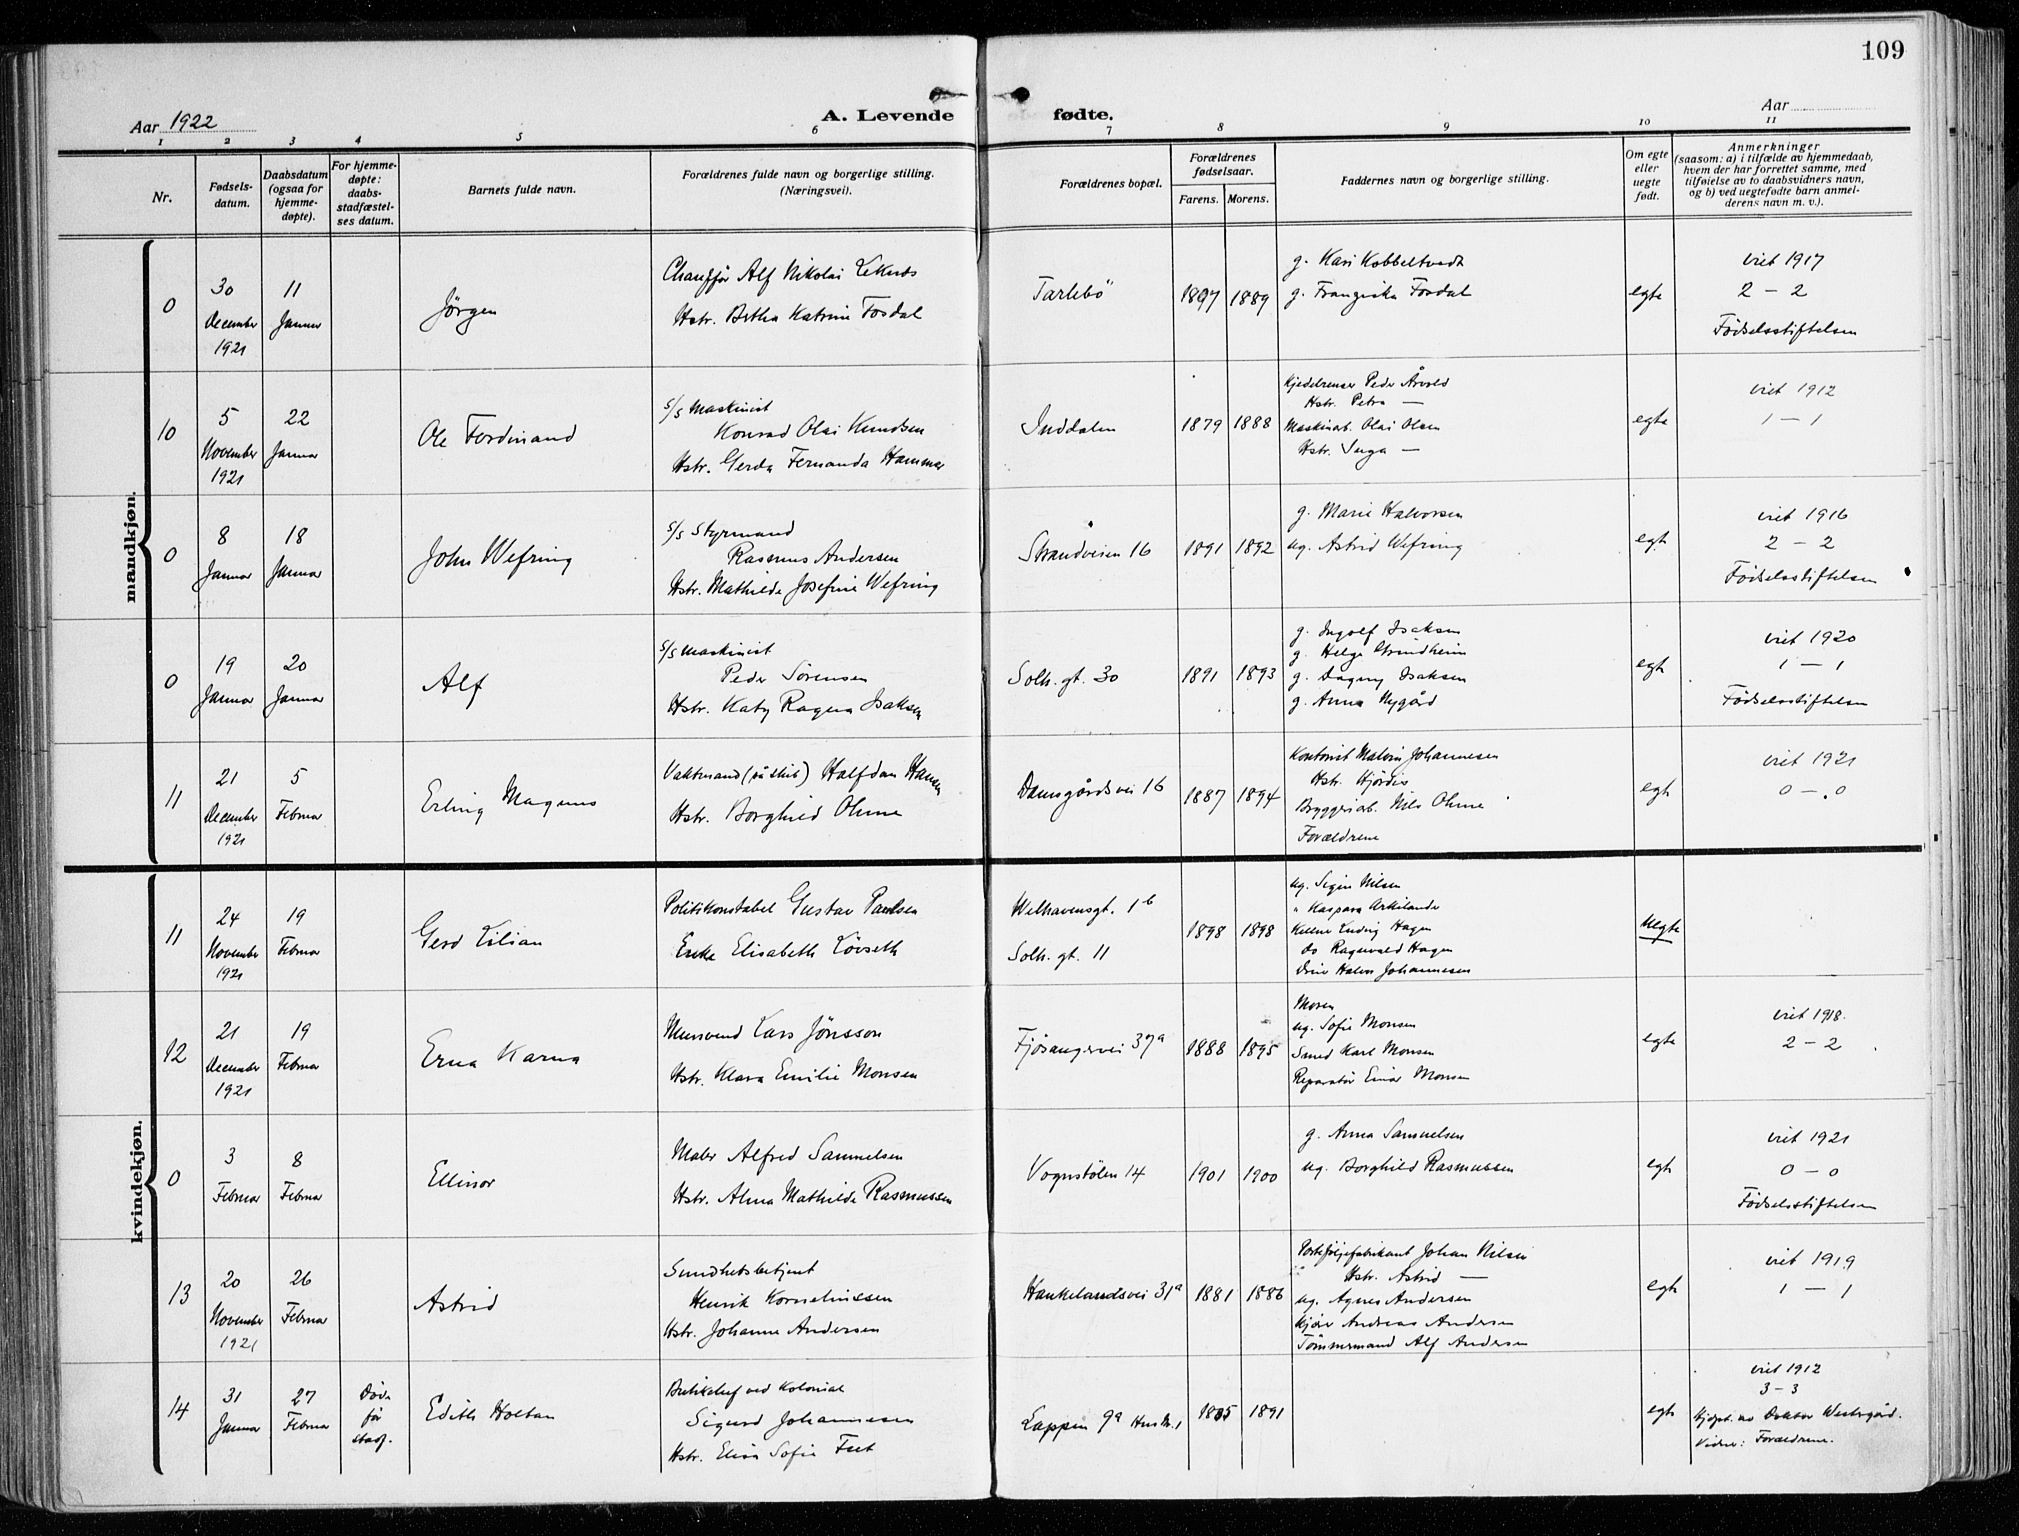 109
Aar 1922
A. Levende fødte.
Aar
1 2 3 4 5 6 7 8 9 10 11
Nr.
Fødsels-
datum.
Daabsdatum
(ogsaa for
hjemme-
døpte).
For hjemme-
døpte:
daabs-
stadfæstel-
ses datum.
Barnets fulde navn.
Forældrenes fulde navn og borgerlige stilling.
(Næringsvei).
Forældrenes bopæl.
Forældrenes
fødselsaar.
Farens. Morens.
Faddernes navn og borgerlige stilling.
Om egte
eller
uegte
født.
Anmerkninger
(saasom: a) i tilfælde av hjemmedaab,
hvem der har forrettet samme, med
tilføielse av to daabsvidners navn,
og b) ved uegtefødte barn anmel-
derens navn m. v.).
mandkjøn.
0
30
December
1921
11
Januar
Jörgen
Chaufför Alf Nikolai
Hstr. Betha Katrine Fosdal
Tarlebö
1897 1889
g. Kari Kobbeltvedt
g. Franziska Fosdal
egte
viet 1917
2 - 2
Födselsstiftelsen
10
5
November
1921
22
Januar
Ole Ferdinand
s/s Maskinist
Konrad Olai Knudsen
Hstr. Gerda Fernanda Hammer
Inddalen
1879 1888
Kjedelrenser Peder Årvold
Hstr. Petra —
Maskinarb. Olai Olsen
Hstr. Inga —
egte
viet 1912
1 - 1
0
8
Januar
18
Januar
John Wefring
s/s Styrmand
Rasmus Andersen
Hstr. Mathilde Josefine Wefring
Strandveien 16
1891 1892
g. Marie Halvorsen
ug. Astrid Wefring
egte
viet 1916
2 - 2
Födselsstiftelsen
0
19
Januar
20
Januar
Alf
s/s Maskinist
Peder Sörensen
Hstr. Katy Ragna Isaksen
Solh. gt. 30
1891 1893
g. Ingolf Isaksen
g. Helge Grindheim
g. Dagny Isaksen
g. Anna Nygård
egte
viet 1920
1 - 1
Födselsstiftelsen
11
21
December
1921
5
Februar
Erling Magnus
Vaktmand (på skib) Halfdan Hansen
Hstr. Borghild Ohme
Damsgårdsvei 16
1887 1894
Kontorist Malvin Johannesen
Hstr. Hjördis
Bryggeriarb. Nils Ohme
Forældrene
egte
viet 1921
0 - 0
kvindekjøn.
11
24
November
1921
19
Februar
Gerd Lilian
Politikonstabel Gustav Paulsen
Enke Elisabeth Lövseth
Welhavensgt. 1b
Solh. gt. 11
1898 1898
ug. Sigin Nilsen
" Kaspara Arkilande
Kelner Ludvig Hagen
do Ragnvald Hagen
Halvo Johannesen
uegte
12
21
December
1921
19
Februar
Erna Karna
Mursvend Lars Jönsson
Hstr. Klara Emilie Monsen
Fjösangervei 37a
1888 1895
Moren
ug. Sofie Monsen
Smed Karl Monsen
Reparatör Einar Monsen
egte
viet 1918.
2 - 2
0
3
Februar
8
Februar
Ellinor
Maler Alfred Samuelsen
Hstr. Alma Mathilde Rasmussen
Vognstölen 14
1901 1900
g. Anna Samuelsen
ug. Borghild Rasmussen
egte
viet 1921
0 - 0
Födselsstiftelsen
13
20
November
1921
26
Februar
Astrid
Sundhetsbetjent
Henrik Korneliussen
Hstr. Johanne Andersen
Haukelandsvei 31a
1881 1886
Porteföljefabrikant Johan Nilsen
Hstr. Astrid —
ug. Agnes Andersen
Kjörer Andreas Andersen
Tömmermand Alf Andersen
egte
viet 1919
1 - 1
14
31
Januar
27
Februar
Död
för
stadf.
Edith Holtan
Butikchef ved Kolonial
Sigurd Johannesen
Hstr. Elise Sofie
Lappen 9a Hus Nr. 1
1885 1891
egte
viet 1912
3 - 3
Hjdpt. av Doktor Westergård.
Vidner: Forældrene.